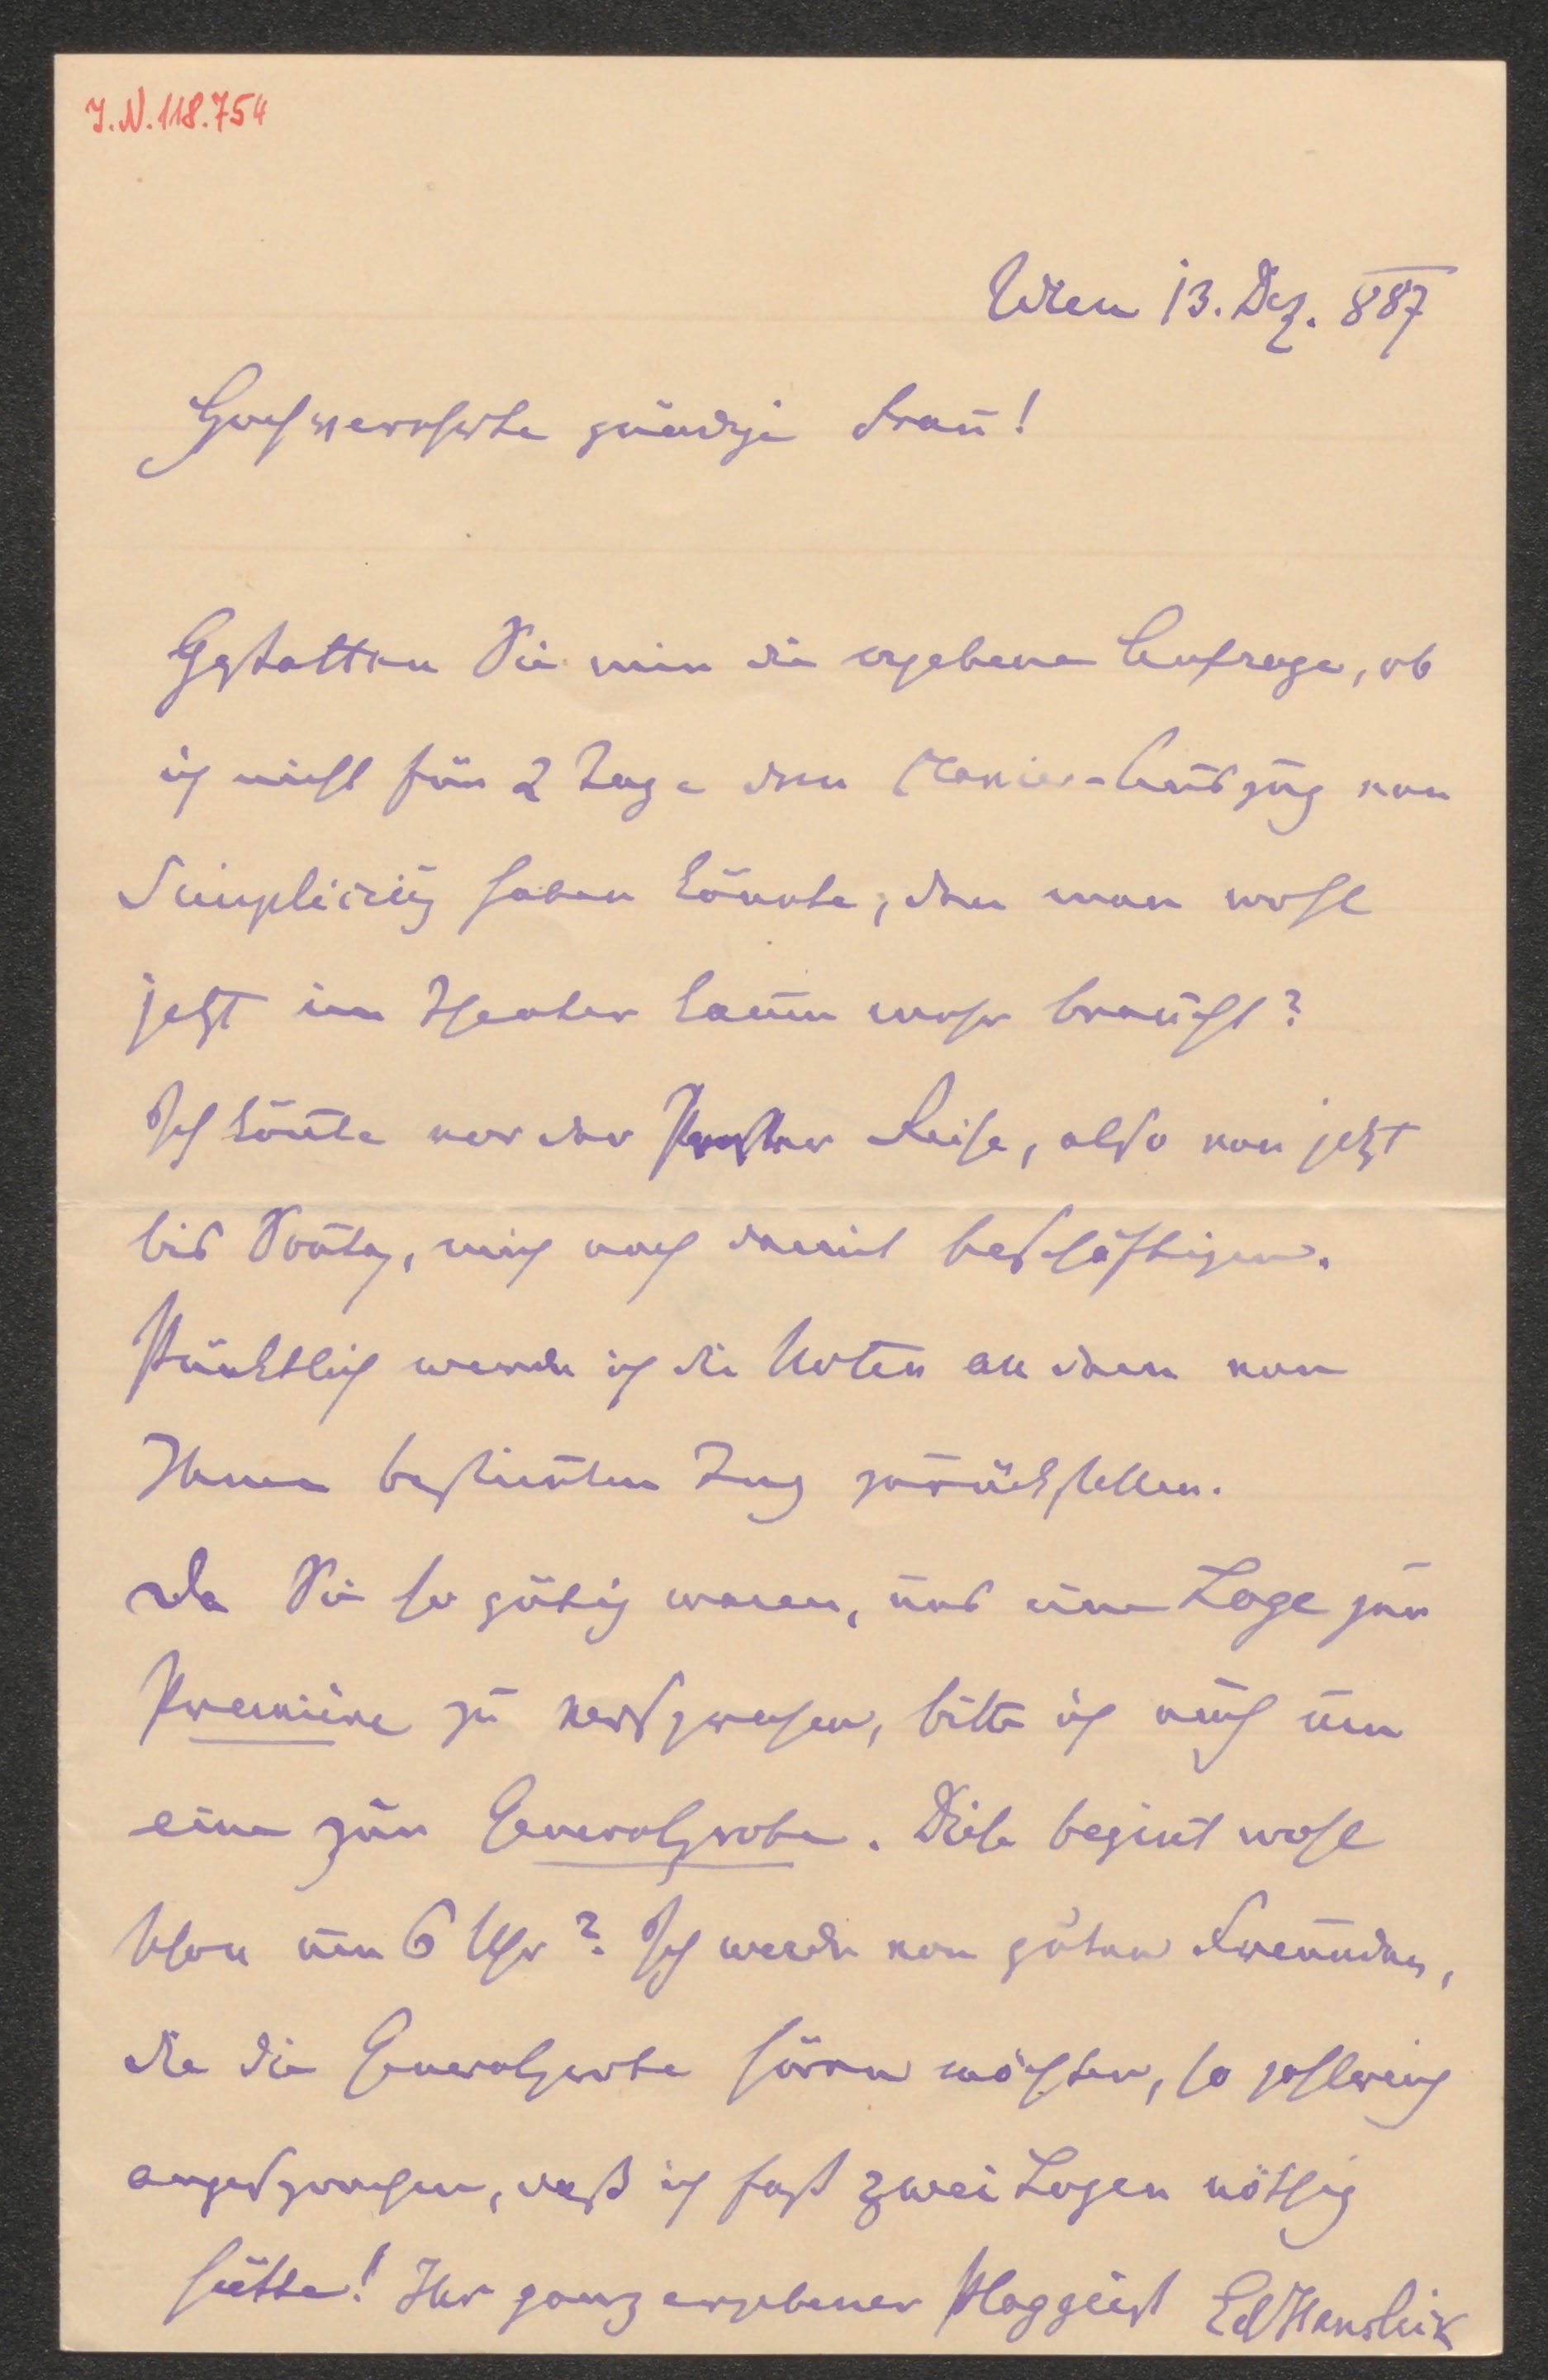 I.N. 118.754
Wien 13. Dez. 887
Hochverehrte gnädige Frau!
Gestatten Sie mir die ergebene Anfrage, ob
ich nicht für 2 Tage den Clavier-Auszug von
Simplicius haben könnte, den man wohl
jetzt im Theater kaum mehr braucht?
Ich kon̄te vor der Pester Reise, also von jetzt
bis Son̄tag, mich noch damit beschäftigen.
Pünktlich werde ich die Noten an dem von
Ihnen bestim̄ten Tag zurückstellen.
Da Sie so gütig waren, uns eine Loge zur
Première zu versprechen, bitte ich auch um
eine zur Generalprobe. Diese begin̄t wohl
schon um 6 Uhr? Ich werde von guten Freunden,
die die Generalprobe hören möchten, so zahlreich
angesprochen, daß ich fast zwei Logen nöthig
hätte! Ihr ganz ergebener Plaggeist Ed Hanslick